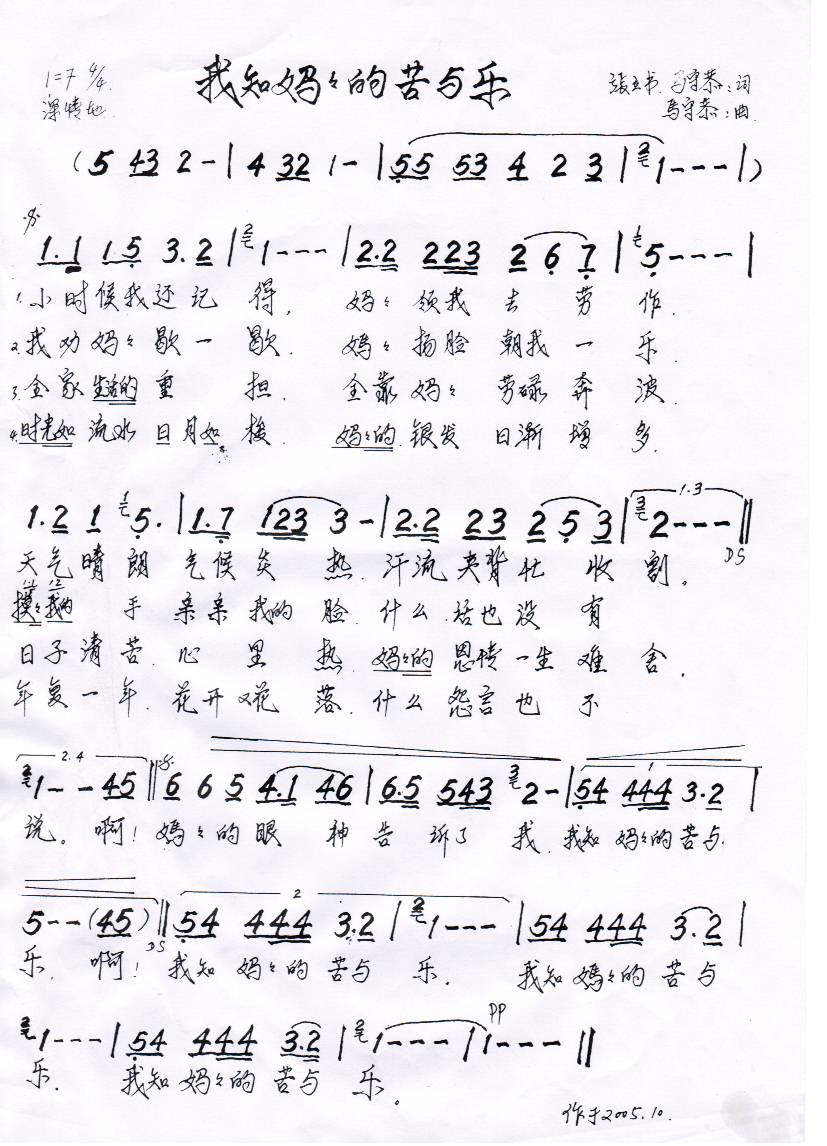 我知妈々的苦与乐
1=F 4/4
深情地
张玉书 马守恭：词
马守恭：曲
( 5 43 2 - | 4 32 1 - | 55 53 4 2 3 | 2 1 - - - | )
1.1 1 5 3.2 | 2 1 - - - | 2.2 223 2 6 7 | 6 5 - - - |
1.小时候我还记得， 妈々领我去劳作.
2.我劝妈々歇一歇. 媽々扬脸朝我一乐.
3.全家生活的重担. 全靠妈々劳碌奔波.
4.时光如流水日月如梭. 妈々的银发日渐增多.
1.2 1 5. | 1.7 123 3 - | 2.2 23 2 5 3 | 1.3 3 2 - - - ‖ DS
天气晴朗气候炎热. 汗流夹背忙收割。
摸々我的手亲亲我的脸. 什么话也没有
日子清苦. 心里热. 妈々的恩情一生难舍.
年复一年. 花开又花落. 什么怨言也不
2.4 2 1 - - 45 ‖ 6 6 5 4.1 46 | 6.5 543 3 2 - | 1 54 444 3.2 |
说。啊！媽々的眼神告诉了我. 我知妈々的苦与
5 - - (45) ‖ DS 2 54 444 3.2 | 2 1 - - - | 54 444 3.2 |
乐. 啊！我知妈々的苦与乐. 我知媽々的苦与
2 1 - - - | 54 444 3.2 | 2 1 - - - | PP 1 - - - ‖
乐. 我知妈々的苦与乐。
作于2005.10.